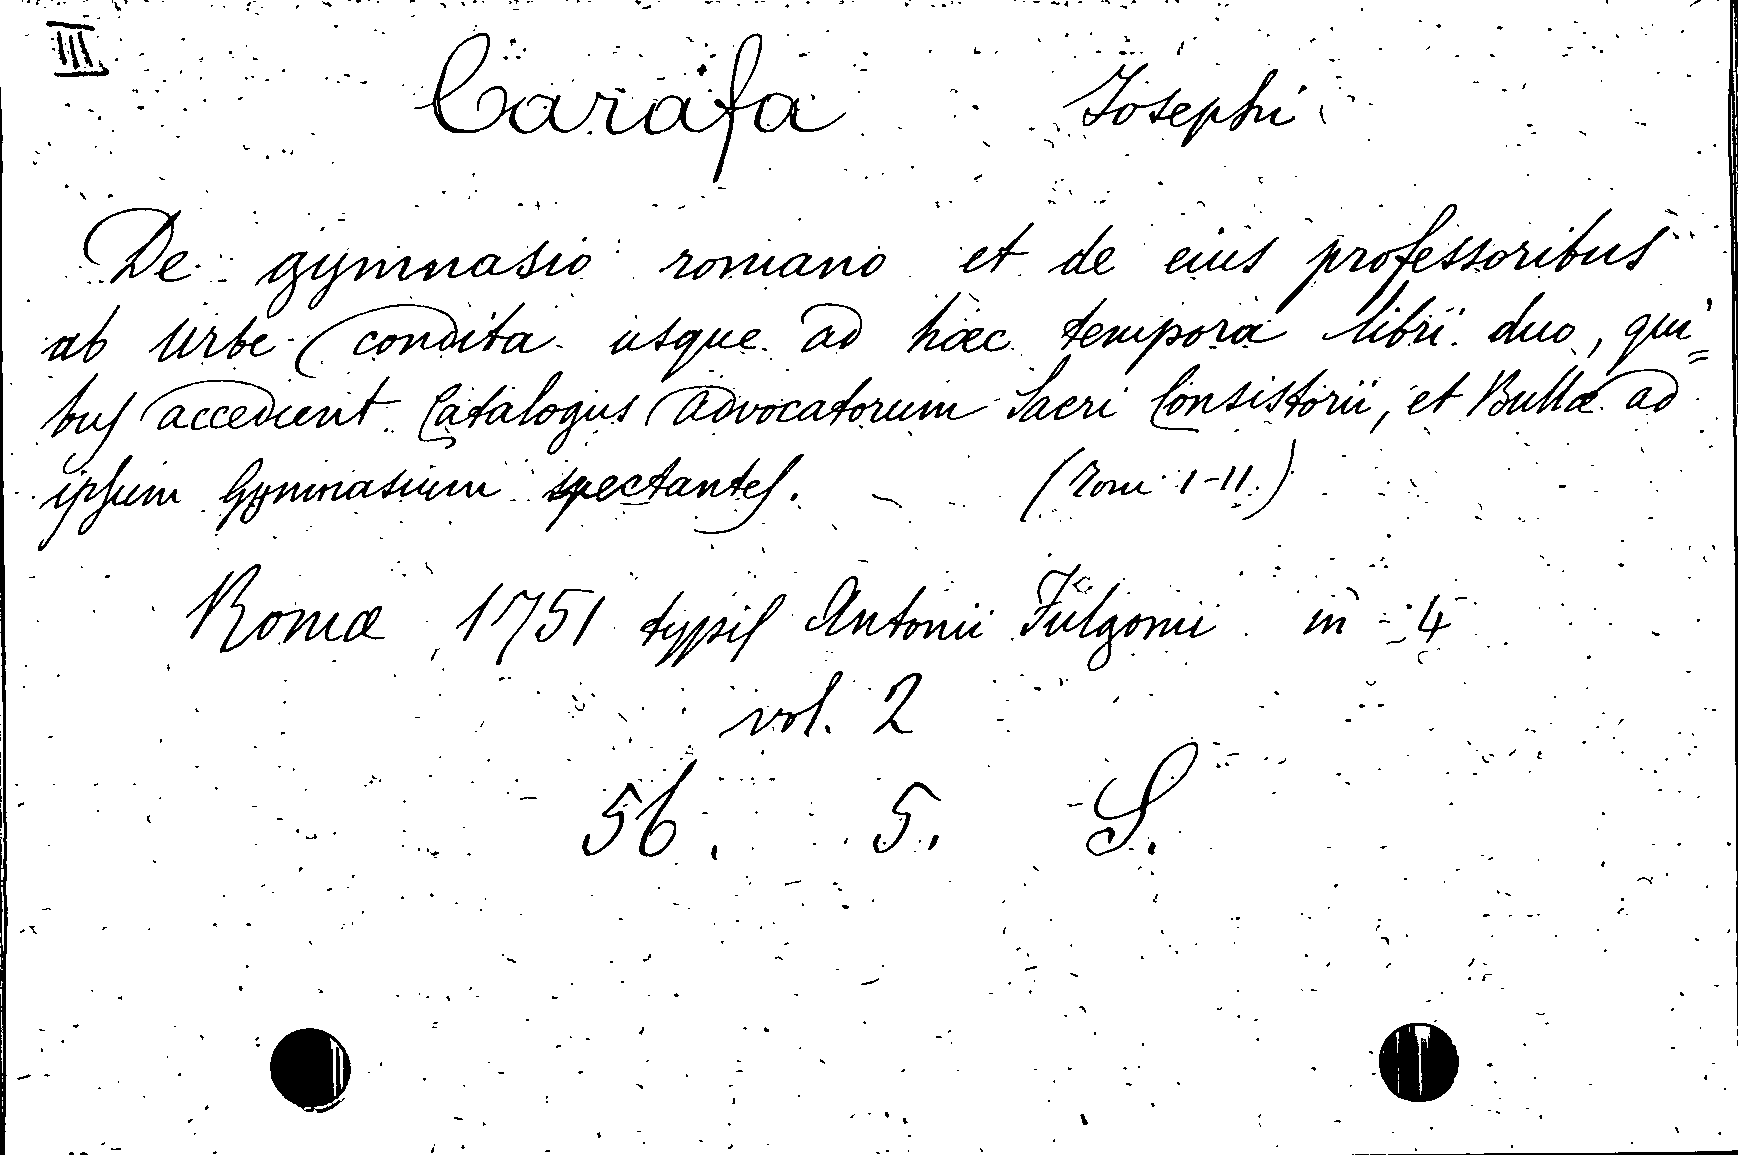 III
Carafa Josephi
De gymnasio romano et de eius professoribus
ab Urbe condita usque ad hæc tempora libri duo, qui=
bus accedunt Catalogus Advocatorum Sacri Consistorii, et Bullæ ad
ipsum Gymnasium spectantes. (Tom. I-II.)
Romæ 1751 typis Antonii Fulgonii in - 4
vol. 2
56. 5. S.